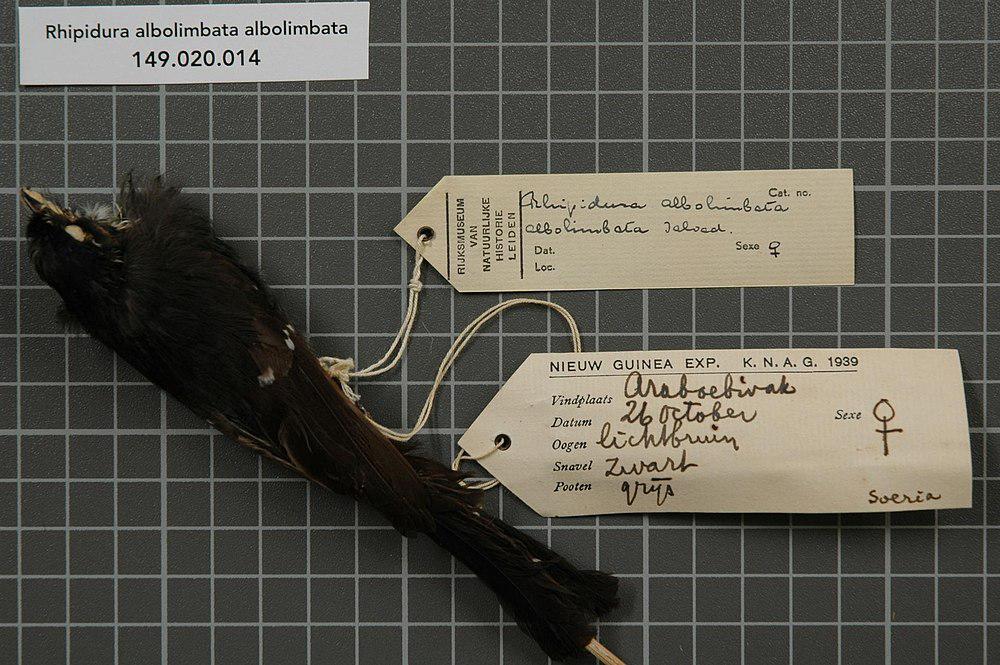 Rhipidura albolimbata albolimbata
149.020.014
RIJKSMUSEUM
VAN
NATUURLIJKE
HISTORIE
LEIDEN
Cat. no.
Rhipidura albolimbata
albolimbata Salvad.
Dat.
Sexe ♀
Loc.
NIEUW GUINEA EXP. K. N. A. G. 1939
Vindplaats Araboebivak
Datum 26 October
Sexe ♀
Oogen lichtbruin
Snavel zwart
Pooten grijs
Soeria